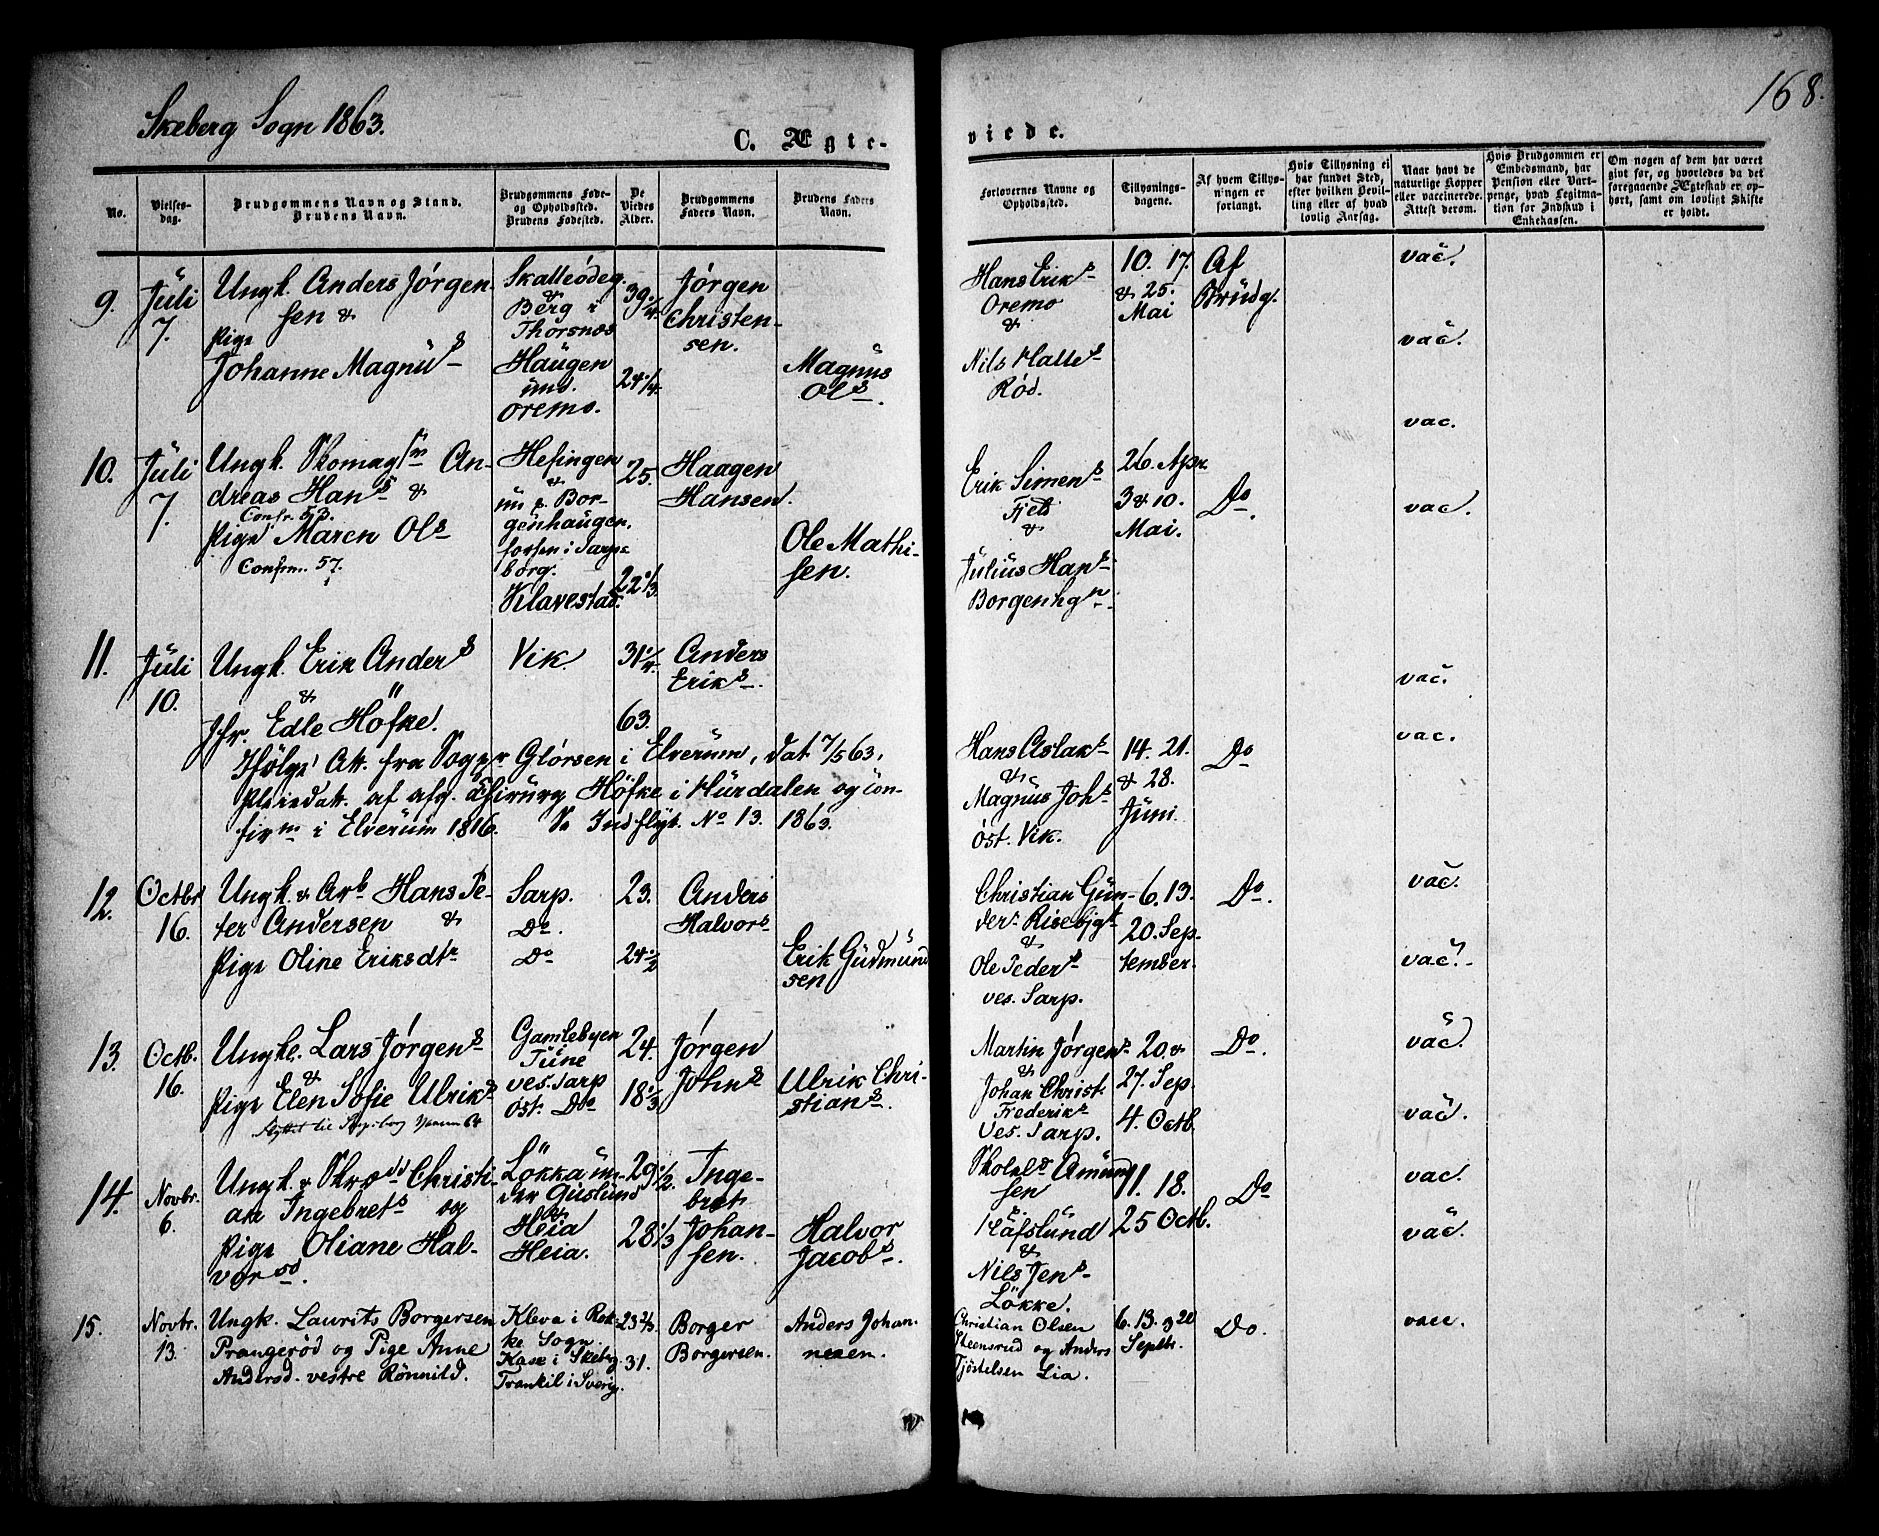 168.
Skeberg Sogn 1863.
C. Ægte-
viede.
No.
Vielses-
dag.
Brudgommens Navn og Stand.
Brudens Navn.
Brudgommens Føde-
og Opholdssted.
Brudens Fødested.
De
Viedes
Alder.
Brudgommens
Faders Navn.
Brudens Faders
Navn.
Forlovernes Navne og
Opholdssted.
Tillysnings-
dagene.
Af hvem Tillys-
ningen er
forlangt.
Hvis Tillysning ei
har fundet Sted,
efter hvilken Bevil-
ling eller af hvad
lovlig Aarsag.
Naar havt de
naturlige Kopper
eller vaccinerede.
Attest derom.
Hvis Brudgommen er
Embedsmand, har
Pension eller Vart-
penge, hvad Legitima-
tion for Indskud i
Enkekassen.
Om nogen af dem har været
gift før, og hvorledes da det
foregaaende Ægteskab er op-
hørt, samt om lovligt Skifte
er holdt.
9.
Juli
7.
Ungk. Anders Jørgen-
sen &
Pige
Johanne Magnus
Skalleødeg.
&
Berg i
Thorsnæs
Haugen
und.
Oremo.
39 1/4
24 1/4
Jørgen
Christen-
sen.
Magnus
Ols.
Hans Eriks
Oremo
&
Nils Halles
Rød.
10. 17.
& 25.
Mai
Af
Brudg.
vac.
vac.
10.
Juli
7.
Ungk. Skomagsn An-
dreas Hans &
Confr. 53.
Pige Maren Ols
Confrm. 57.
Hesingen
&
nu p. Bor-
genhaugen.
forsen i Sarps-
borg.
Klavestad.
25.
22 1/3
Haagen
Hansen.
Ole Mathi-
sen.
Erik Simens
Fjeld
&
Julius Hans
Borgenhgn
26. Apr.
3 & 10.
Mai.
Do.
vac.
vac.
11.
Juli
10.
Ungk. Erik Anders
&
Jfr. Edle Höfke.
Vik.
31 1/4
63.
Anders
Eriks.
Ifölge Att. fra Sogpr Glörsen i Elverum, dat 7/5 63,
Pleiedatt. af afg. Chirurg Höfke i Hurdalen og con-
firm i Elverum 1816. Va Indflyt. No 13. 1863.
Hans Aslaks
&
Magnus Johs
Öst. Vik.
14. 21.
& 28.
Juni.
Do
vac.
vac.
12.
Octbr
16.
Ungk. & Arb Hans Pe-
ter Andersen &
Pige Oline Eriksdtr
Sarp.
Do.
Do
23.
24 1/2
Anders
Halvors
Erik Gudmund
sen
Christian Gun-
ders Risebjgt
&
Ole Peders
ves. Sarp.
6. 13.
20. Sep-
tember.
Do.
vac.
vac.
13.
Octb.
16.
Ungke. Lars Jørgens
&
Pige Elen Sofie Ulriks
Gamlebyen
Tune
ves. Sarp
öst. Do
24.
18 1/3
Jørgen
Johns
Ulrik Chri-
stians.
Martin Jørgens
&
Johan Christ.
Frederiks
Ves. Sarp.
20. &
27. Sep.
4. Octb.
Do.
vac.
vac.
14.
Novbr.
6.
Ungk. & Skræd Christi-
an Ingebrets og
Pige Oliane Hal-
vorsd.
Lökka un-
der Guslund
&
Heia
Heia.
29 1/2
28 1/3
Inge-
bret
Johan-
sen.
Halvor
Jacobs.
Skolel Amund
sen
Hafslund
&
Nils Jens
Løkke.
11. 18.
25 Octb.
Do
vac.
vac.
15.
Novbr.
13.
Ungk. Laurits Borgersen
Prangerød og Pige Anne
Andersd. vestre Rönnild.
Kleva i Rok-
ke Sogn.
Kase i Skeberg
Trankil i Sverig.
23 2/3
31.
Borger
Borgersen.
Anders Johan-
nesen.
Christian Olsen
Steensrud og Anders
Tjöstelsen Lia.
6. 13. og 20
Septbr.
Do.
vacc.